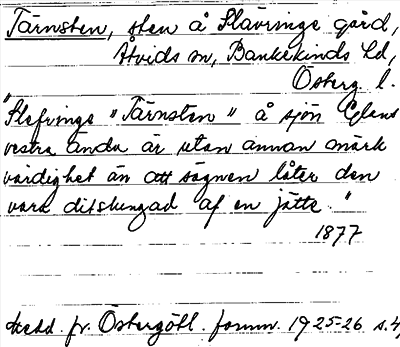 Tärnsten, sten å Slävringe gård,
Åtvids sn, Bankekinds hd,
Österg. l.
"Slefringe "Tärnsten" å sjön Glans
vestra ända är utan annan märk
värdighet än att sägnen låter den
vara ditslungad af en jätte."
1877
Medd. fr. Östergötl. fornm. 1925-26. s.4